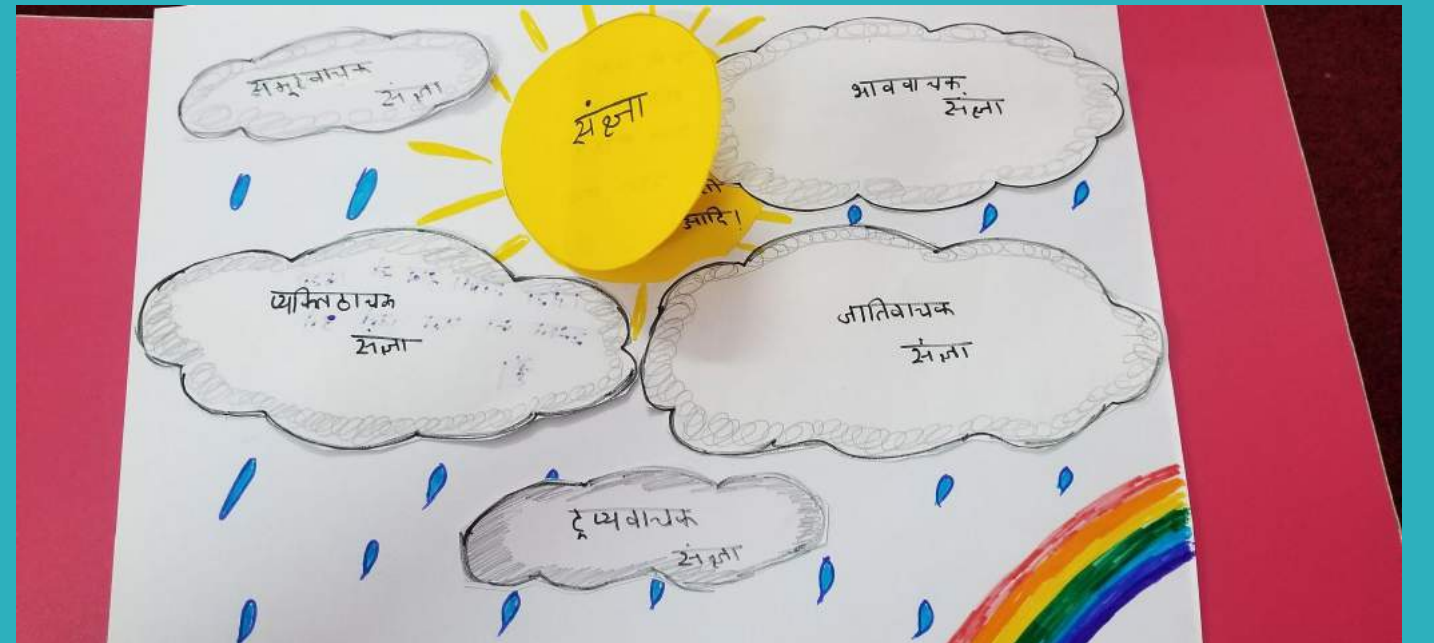 समूहवाचक
संज्ञा
संज्ञा
भाववाचक
संज्ञा
आदि।
व्यक्तिवाचक
संज्ञा
जातिवाचक
संज्ञा
द्रव्यवाचक
संज्ञा